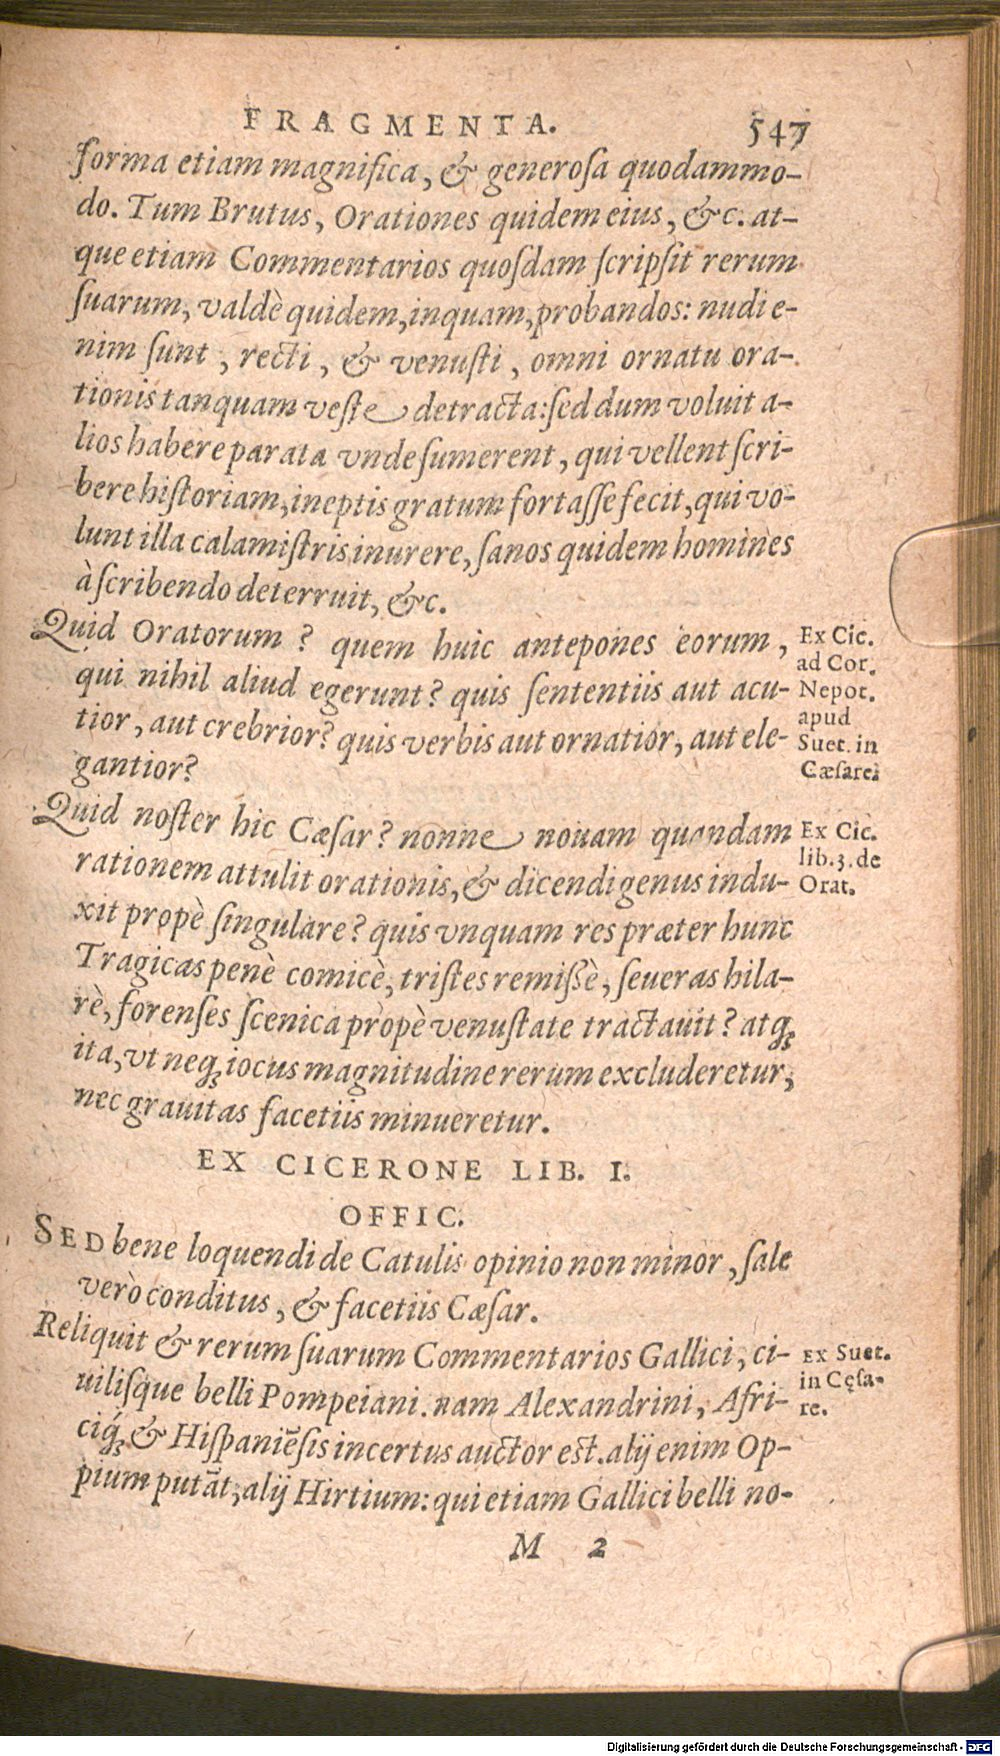 FRAGMENTA. 547
forma etiam magnifica, & generosa quodammo-
do. Tum Brutus, Orationes quidem eius, &c. at-
que etiam Commentarios quosdam scripsit rerum
suarum, valdè quidem, inquam, probandos: nudi e-
nim sunt, recti, & venusti, omni ornatu ora-
tionis tanquam veste detracta: sed dum voluit a-
lios habere parata vnde sumerent, qui vellent scri-
bere historiam, ineptis gratum fortasse fecit, qui vo-
lunt illa calamistris inurere, sanos quidem homines
à scribendo deterruit, &c.
Quid Oratorum? quem huic antepones eorum,
qui nihil aliud egerunt? quis sententiis aut acu-
tior, aut crebrior? quis verbis aut ornatior, aut ele-
gantior?
Ex Cic.
ad Cor.
Nepot.
apud
Suet. in
Cæsare.
Quid noster hic Cæsar? nonne nouam quandam
rationem attulit orationis, & dicendi genus indu-
xit propè singulare? quis vnquam res præter hunc
Tragicas penè comicè, tristes remissè, seueras hila-
rè, forenses scenica propè venustate tractauit? atq;
ita, vt neq; iocus magnitudine rerum excluderetur,
nec grauitas facetiis minueretur.
Ex Cic.
lib. 3. de
Orat.
EX CICERONE LIB. I.
OFFIC.
SED bene loquendi de Catulis opinio non minor, sale
verò conditus, & facetiis Cæsar.
Reliquit & rerum suarum Commentarios Gallici, ci-
uilisque belli Pompeiani. nam Alexandrini, Afri-
ciq́; & Hispaniēsis incertus auctor est. alij enim Op-
pium putāt, alij Hirtium: qui etiam Gallici belli no-
Ex Suet.
in Cęsa-
re.
M 2
Digitalisierung gefördert durch die Deutsche Forschungsgemeinschaft - DFG